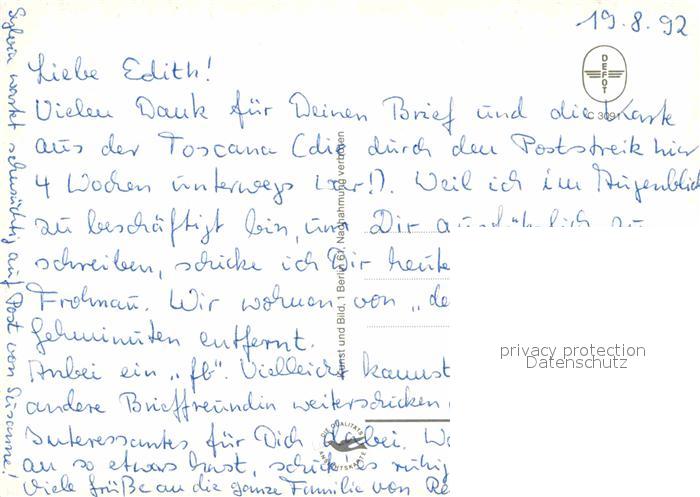 19.8.92
Liebe Edith!
Vielen Dank für Deinen Brief und die Karte
aus der Toscana (die durch den Poststreik hier
4 Wochen unterwegs war!). Weil ich im Augenblick
zu beschäftigt bin, um Dir ausführlich zu
schreiben, schicke ich Dir heute
Frohnau. Wir wohnen von „de
Gehminuten entfernt.
Anbei ein „fb“. Vielleicht kannst
andere Brieffreundin weiterschicken
Interessantes für Dich dabei. We
an so etwas hast, schick es ruhig
Viele Grüße an die ganze Familie von Re
Sylvia wartet sehnsüchtig auf Post von Susanne!
DEFOT
C 3091
Kunst und Bild, 1 Berlin 61, Nachahmung verboten
DIE QUALITÄTS
ANSICHTSKARTE
privacy protection
Datenschutz